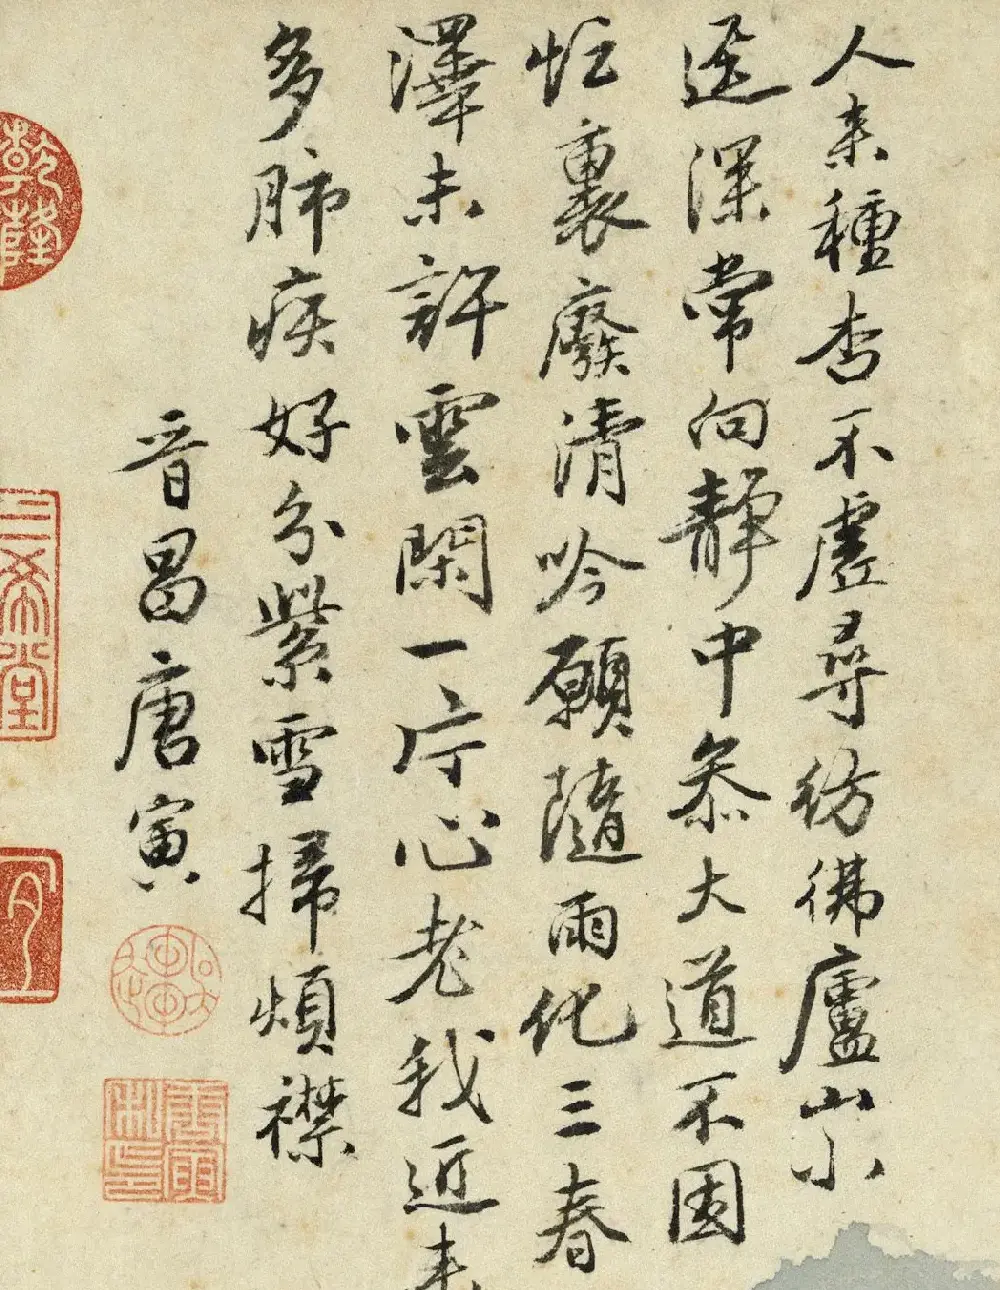 人来種杏不虚尋彷彿廬山小
逕深常向静中叅大道不因
忙裏廢清吟願隨雨化三春
澤未許雲閑一片心老我近来
多肺疾好分紫雪掃煩襟
晉昌唐寅
乾隆
三希堂